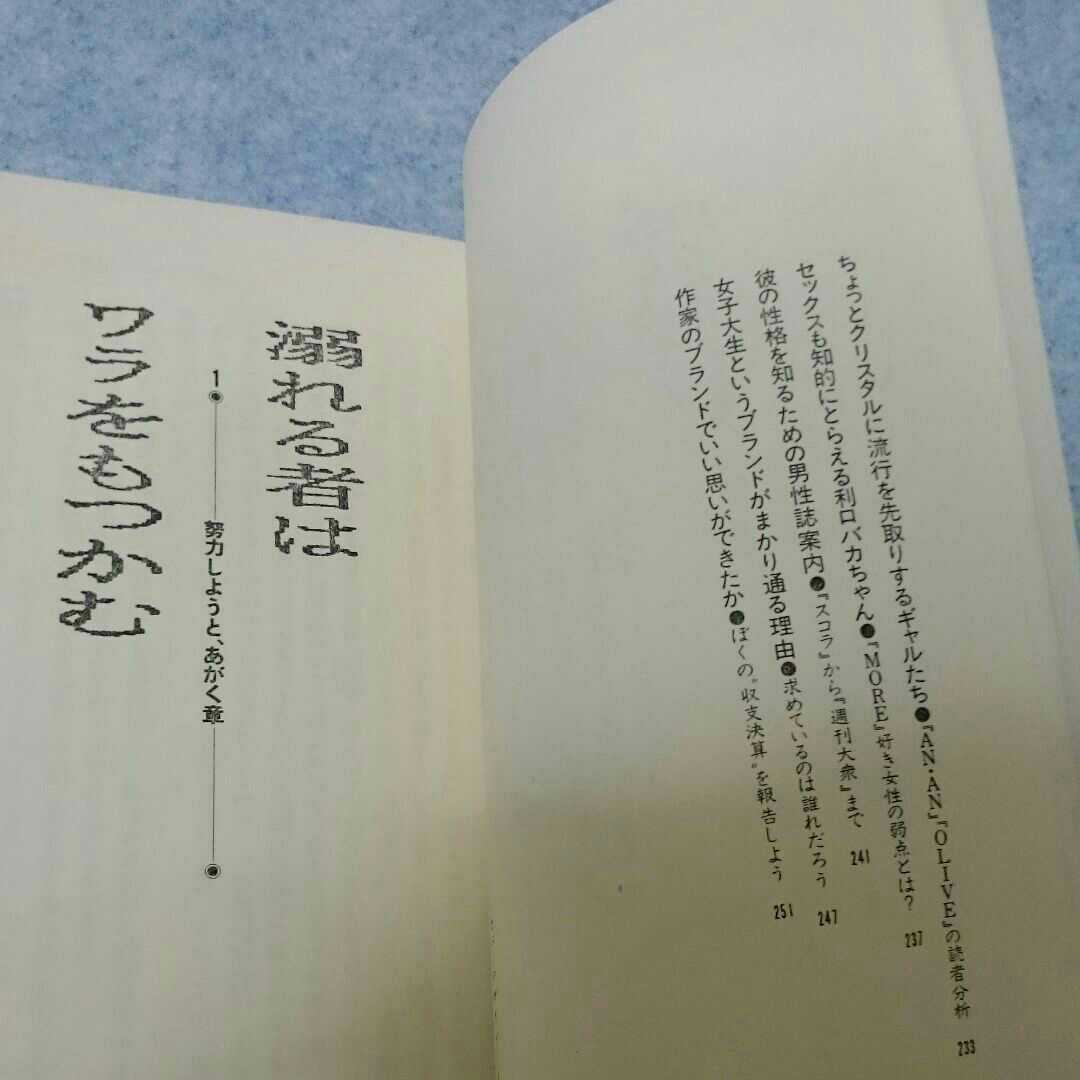 ちょっとクリスタルに流行を先取りするギャルたち●『AN・AN』『OLIVE』の読者分析 233
セックスも知的にとらえる利口バカちゃん●『MORE』好き女性の弱点とは? 237
彼の性格を知るための男性誌案内●『スコラ』から『週刊大衆』まで 241
女子大生というブランドがまかり通る理由●求めているのは誰れだろう 247
作家のブランドでいい思いができたか●ぼくの〝収支決算〟を報告しよう 251
溺れる者は
1 努力しようと、あがく章
ワラをもつかむ